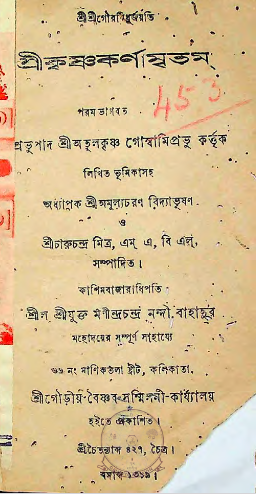 শ্রীশ্রীগৌরবিধুর্জয়তি
শ্রীকৃষ্ণকর্ণামৃতম্
453
পরম ভাগবত
প্রভুপাদ শ্রীঅতুলকৃষ্ণ গোস্বামিপ্রভু কর্ত্তৃক
লিখিত ভূমিকাসহ
অধ্যাপক শ্রীঅমূল্যচরণ বিদ্যাভূষণ
ও
শ্রীচারুচন্দ্র মিত্র, এম্ এ, বি এল্,
সম্পাদিত।
কাশিমবাজারাধিপতি
শ্রীল শ্রীযুক্ত মণীন্দ্রচন্দ্র নন্দী বাহাদুর
মহোদয়ের সম্পূর্ণ সাহায্যে
৬৬ নং মাণিকতলা ষ্ট্রীট, কলিকাতা,
শ্রীগৌড়ীয়-বৈষ্ণব-সম্মিলনী-কার্য্যালয়
হইতে প্রকাশিত।
শ্রীচৈতন্যাব্দ ৪২৭, চৈত্র।
বঙ্গাব্দ ১৩১৯।